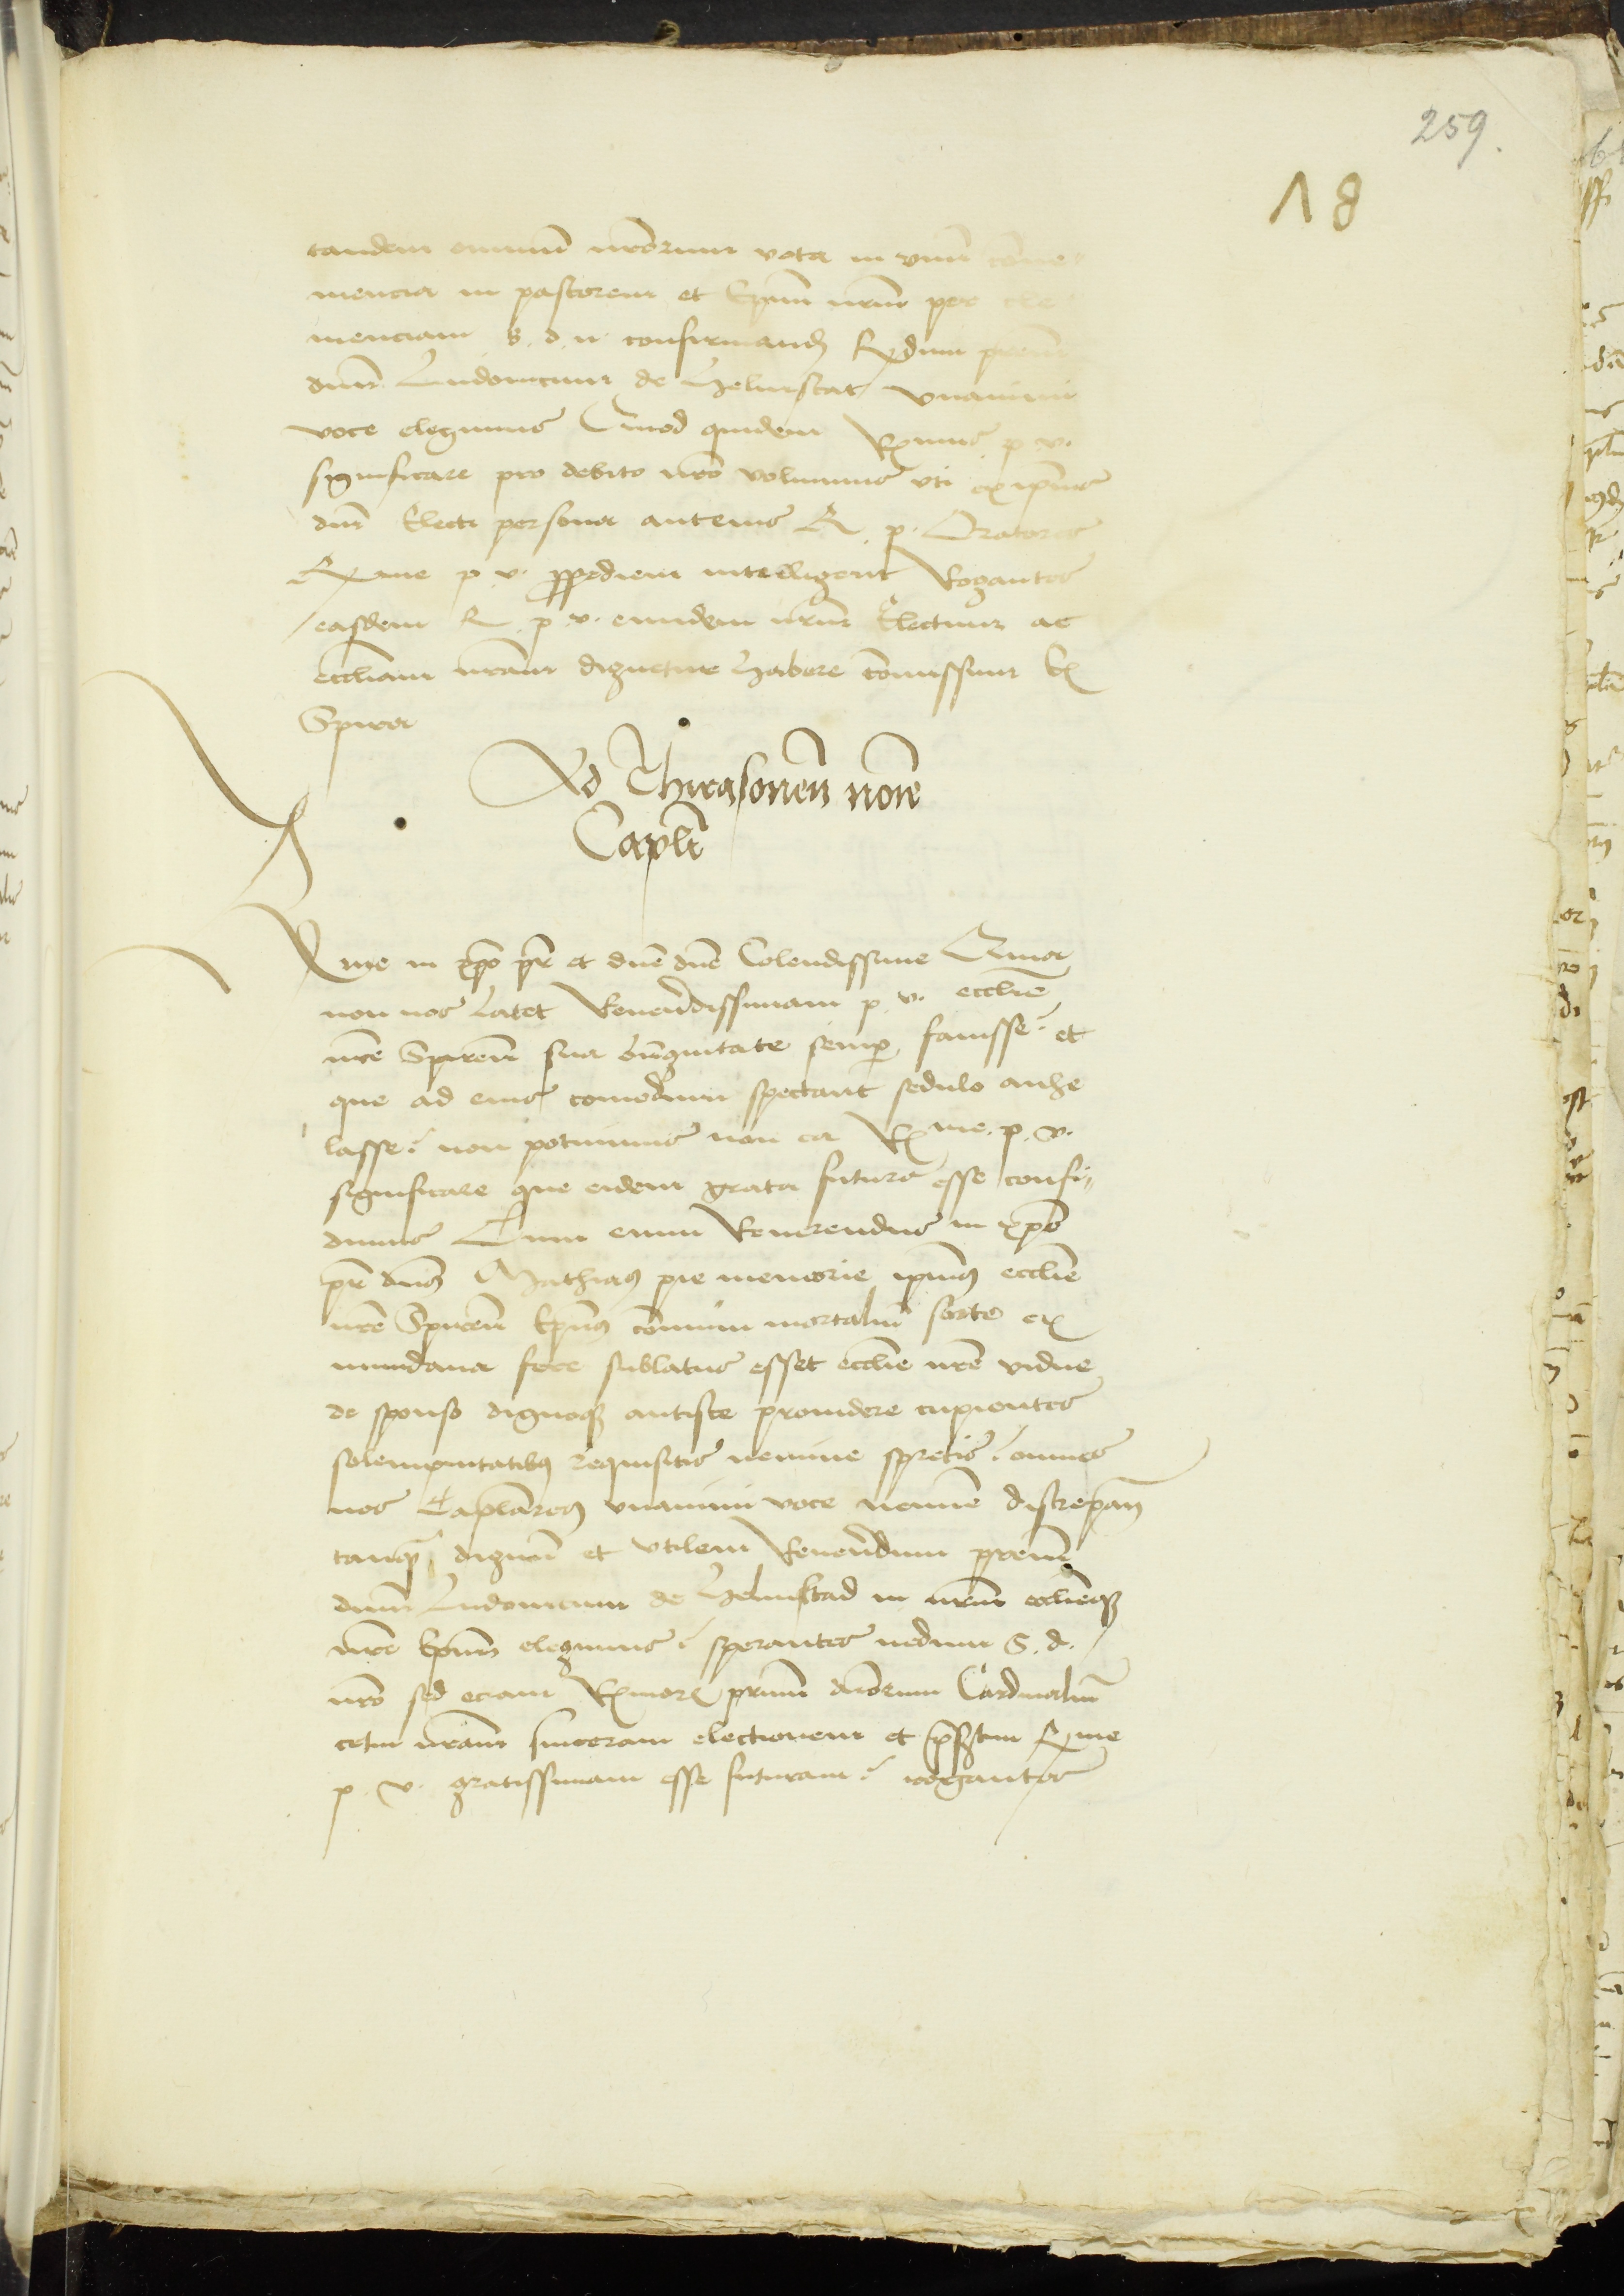 259.
18
tandem omniū nr̄orum vota in vnū conue-
mencia in pastorem et Ep̄um nr̄um per cle
menciam S. d. n. confirmand̄ R̄dum prem̄
dnm̄ Ludouicum de Helmstat vnanimi
voce elegimus Quod quidem Rx̄mus p. v.
significare pro debito nr̄o volumus vti ex ip̄ius
dn̄i Electi persona autenus R. p. Oratores
Rx̄me p. v. propediem intelligent Rogantes
easdem R. p. v. eundem nr̄um Electum ac
eccl̄iam nr̄am dignetur habere com̄issum Ex
Spira
Ad Thirasonen̄ noīe
Caplī
Rx̄me in xp̄o pr̄ et dn̄e dn̄e Colendissime Quia
non nos latet Reuerēdissimam p. v. eccl̄ie
nr̄e Spiren̄ sua benīgnitate semp̄ fauisse et
que ad eius comodum spectant sedulo anhe
lasse non potuimus non ea Rx̄me. p. v.
significare que eidem grata futura esse confi-
dimus Cum enim Reuerendus in xp̄o
pr̄ dn̄s Mathias pie memorie ip̄ius eccl̄ie
nr̄e Spiren̄ Ep̄us com̄uni mortaliū sorte ex
mundana fece sublatus esset eccl̄ie nr̄e vidue
de sponso dignoq̄ antiste prouidere cupientes
solempnitatibus requisitis nemine spretis omnes
nos Capl̄ares vnanimi voce nemīe discrepan̄
tanq̄ dignū et vtilem Reuerēdum prem̄
dnm̄ Ludouicum de Helmstad in nr̄um eccl̄ieq̄
nr̄e Ep̄um elegimus sperantes nedum S. d.
nr̄o sed eciam Rx̄mor̄ prum̄ dn̄orum Cardinaliū
cetui nr̄am sinceram electionem et p̄sertim Rx̄me
p. v. gratissimam esse futuram rogantes